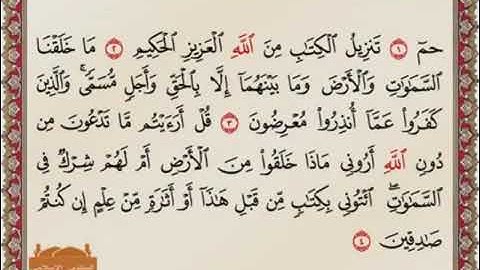 حمٓ ١ تَنزِيلُ ٱلْكِتَٰبِ مِنَ ٱللَّهِ ٱلْعَزِيزِ ٱلْحَكِيمِ ٢ مَا خَلَقْنَا
ٱلسَّمَٰوَٰتِ وَٱلْأَرْضَ وَمَا بَيْنَهُمَآ إِلَّا بِٱلْحَقِّ وَأَجَلٍ مُّسَمًّى ۚ وَٱلَّذِينَ
كَفَرُوا۟ عَمَّآ أُنذِرُوا۟ مُعْرِضُونَ ٣ قُلْ أَرَءَيْتُم مَّا تَدْعُونَ مِن
دُونِ ٱللَّهِ أَرُونِي مَاذَا خَلَقُوا۟ مِنَ ٱلْأَرْضِ أَمْ لَهُمْ شِرْكٌ فِي
ٱلسَّمَٰوَٰتِ ۖ ٱئْتُونِي بِكِتَٰبٍ مِّن قَبْلِ هَٰذَآ أَوْ أَثَٰرَةٍ مِّنْ عِلْمٍ إِن كُنتُمْ
صَٰدِقِينَ ٤